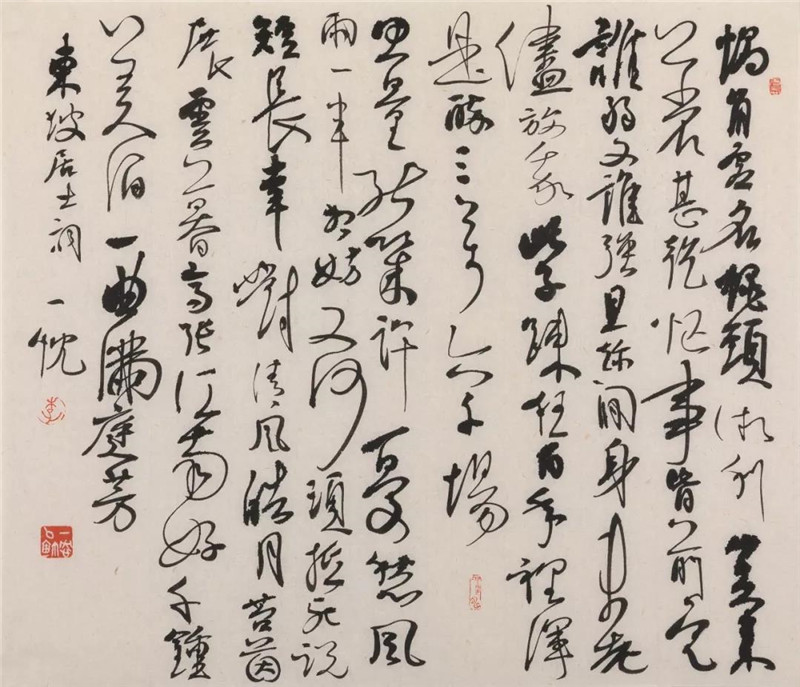 蝸角虛名蠅頭微利算來
著甚乾忙事皆前定
誰弱又誰強且趁閒身未老
儘放我些子踈狂百年裡渾
是醉三万六千場
思量能幾許憂愁風
雨一半相妨又何須抵死說
短長幸對清風皓月苔茵
展雲幕高張江南好千鍾
美酒一曲滿庭芳
東坡居士詞 一